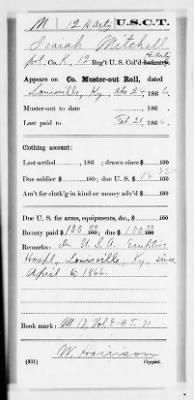 M | 12 H Arty | U.S.C.T.
Isaiah Mitchell
pvt., Co. K, 12 Reg't U. S. Col'd H. Arty Infantry.
Appears on Co. Muster-out Roll, dated
Louisville, Ky, Apr 24, 1866.
Muster-out to date , 186 .
Last paid to Feb 28, 1866.
Clothing account:
Last settled , 186 ; drawn since $ 100
Due soldier $ 100; due U. S. $ 100
Am't for cloth'g in kind or money adv'd $ 100
Due U. S. for arms, equipments, &c., $ 100
Bounty paid $ 100 00/100; due $ 100 00/100
Remarks: In U.S.A. Eruptive
Hospl, Louisville, Ky, since
April 6, 1866.
Book mark:
W. Harrison
(861) Copyist.